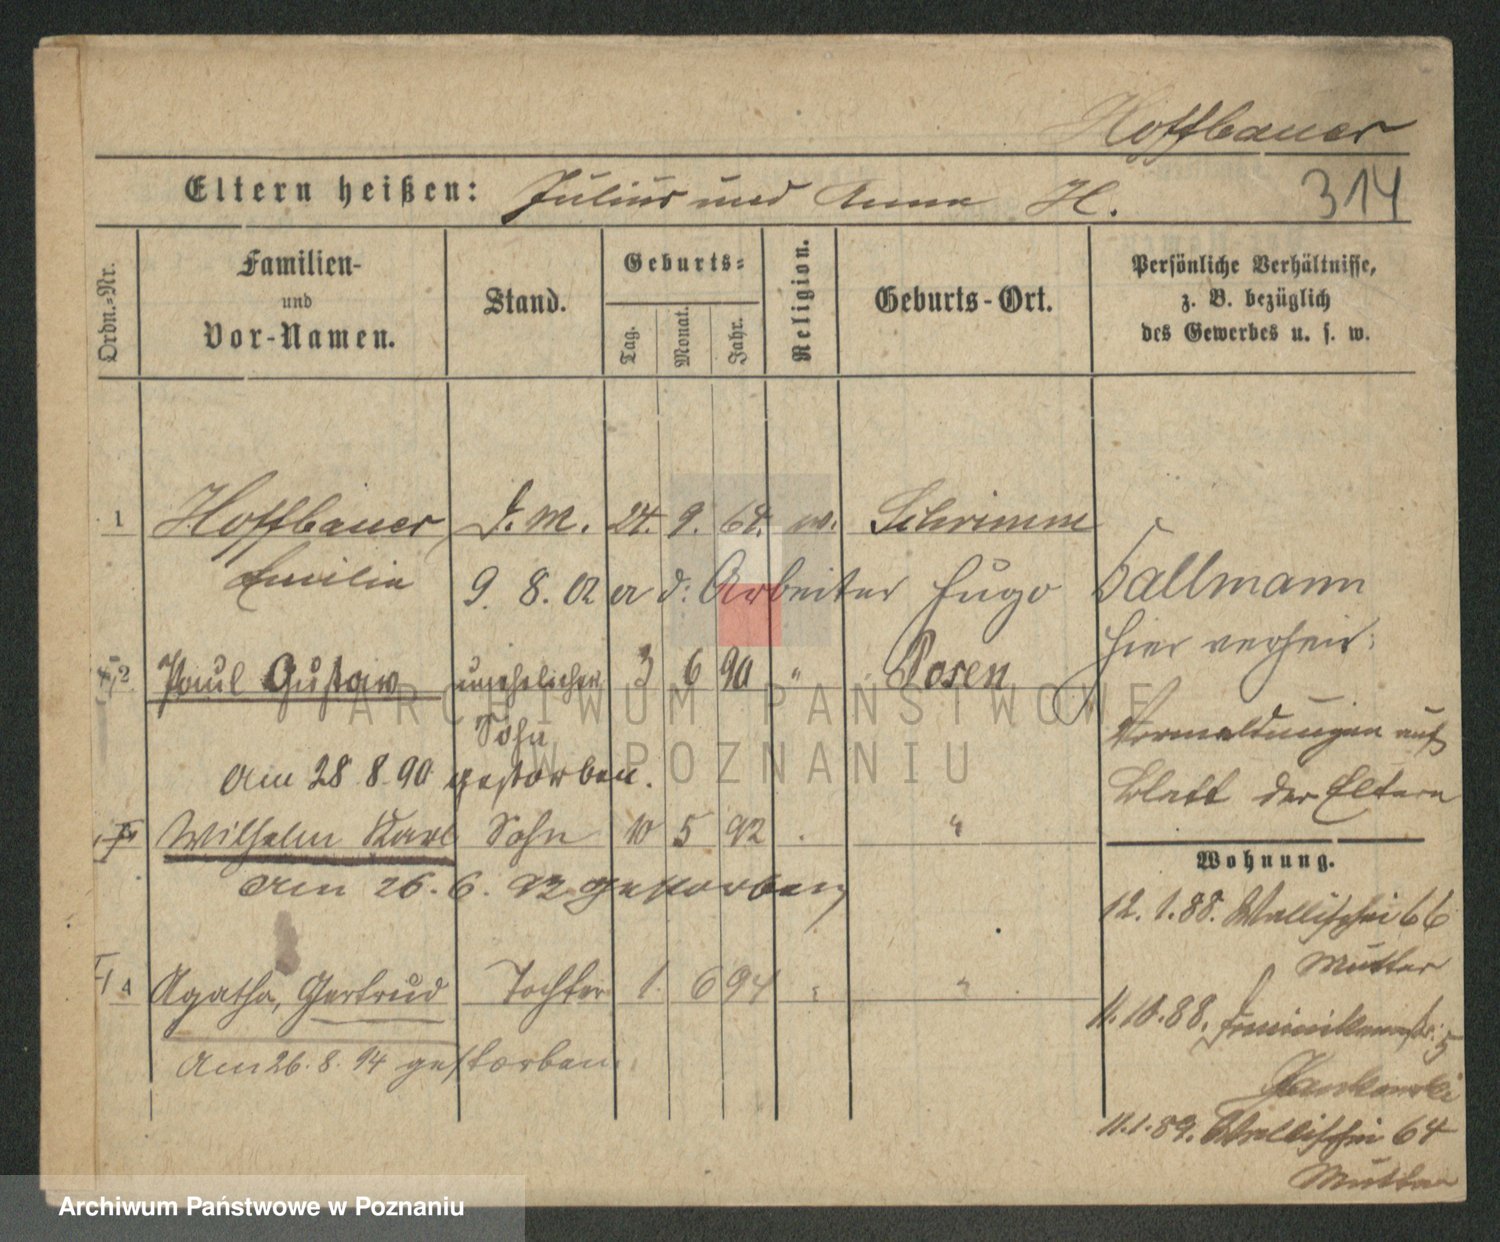 Hoffbauer
Eltern heißen: Julius und Anna H. 314
Ordn.-Nr.
Familien-
und
Vor-Namen.
Stand.
Geburts-
Tag.
Monat.
Jahr.
Religion.
Geburts-Ort.
Persönliche Verhältnisse,
z. B. bezüglich
des Gewerbes u. s. w.
1 Hoffbauer, D. M. 24. 9. 64. ev. Schrimm
Emilie
9. 8. 02 a d. Arbeiter Hugo Hallmann
hier verheir.
2 Paul Gustav unehelicher 3 6 90 " Posen
Sohn
am 28 8. 90 gestorben.
Vormeldungen auf
Blatt der Eltern
Wilhelm Karl Sohn 10 5 92 "
am 26. 6. 92 gestorben
Wohnung.
12. 1. 88. Wallischei 66
Mutter
4 Agatha, Gertrud Tochter 1. 6 94 "
am 26. 8. 94 gestorben.
11. 10. 88. Dominikanerstr. 5
Jankowski
11. 1. 89. Wallischei 64
Mutter
ARCHIWUM PAŃSTWOWE
W POZNANIU
Archiwum Państwowe w Poznaniu